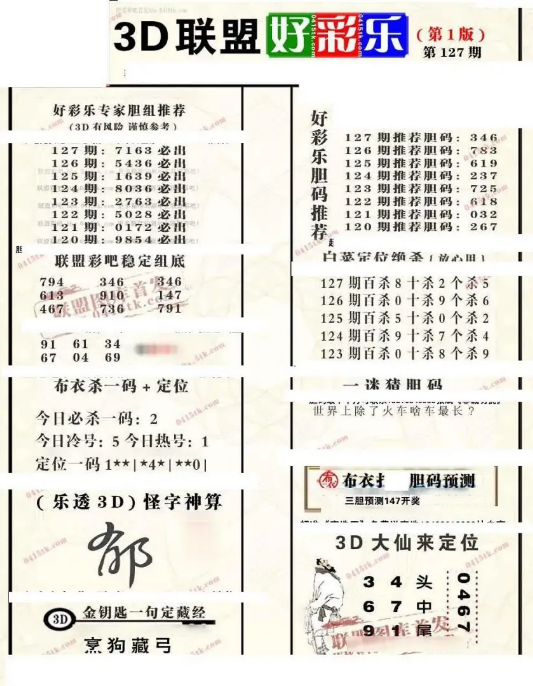 3D联盟 好彩乐 (第1版)
第127期
好彩乐专家胆组推荐
(3D有风险 谨慎参考)
127期: 7163必出
126期: 5436必出
125期: 1639必出
124期: 8036必出
123期: 2763必出
122期: 5028必出
121期: 0172必出
120期: 9854必出
联盟彩吧稳定组底
794 346 346
613 910 147
467 736 791
91 61 34
67 04 69
布衣杀一码+定位
今日必杀一码: 2
今日冷号: 5 今日热号: 1
定位一码 1**|*4*|**0|
(乐透3D) 怪字神算
郁
3D 金钥匙一句定藏经
烹狗藏弓
好彩乐胆码推荐
127期推荐胆码: 346
126期推荐胆码: 783
125期推荐胆码: 619
124期推荐胆码: 237
123期推荐胆码: 725
122期推荐胆码: 618
121期推荐胆码: 032
120期推荐胆码: 267
白菜定位绝杀(放心用)
127期百杀8十杀2个杀5
126期百杀0十杀9个杀6
125期百杀5十杀0个杀2
124期百杀9十杀7个杀4
123期百杀0十杀8个杀9
一谜猜胆码
世界上除了火车啥车最长?
布衣 胆码预测
三胆预测147开奖
3D大仙来定位
3 4 头
6 7 中
9 1 尾
0467
联盟图库首发
0415tk.com